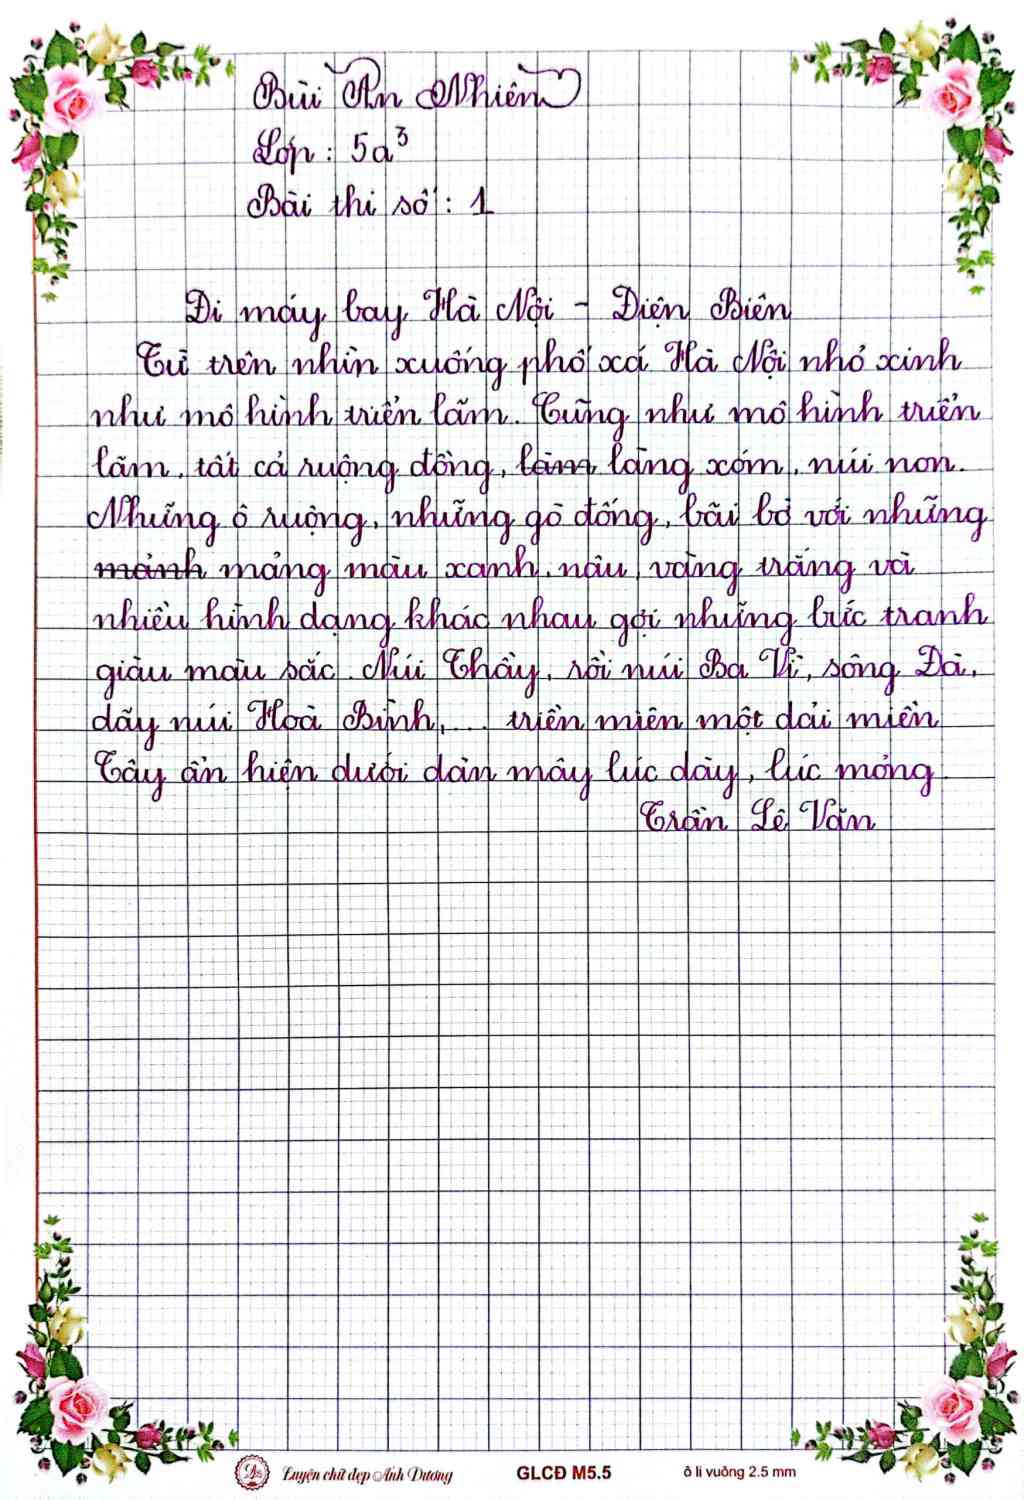 Bùi An Nhiên
Lớp : 5a³
Bài thi số : 1
Đi máy bay Hà Nội - Điện Biên
Từ trên nhìn xuống phố xá Hà Nội nhỏ xinh
như mô hình triển lãm. Cũng như mô hình triển
lãm, tất cả ruộng đồng, làm làng xóm, núi non.
Những ô ruộng, những gò đống, bãi bờ với những
mảnh mảng màu xanh, nâu, vàng trắng và
nhiều hình dạng khác nhau gợi những bức tranh
giàu màu sắc. Núi Thầy, rồi núi Ba Vì, sông Đà,
dãy núi Hoà Bình,... triền miên một dải miền
Tây ẩn hiện dưới dàn mây lúc dày, lúc mỏng.
Trần Lê Văn
Luyện chữ đẹp Ánh Dương
GLCĐ M5.5
ô li vuông 2.5 mm